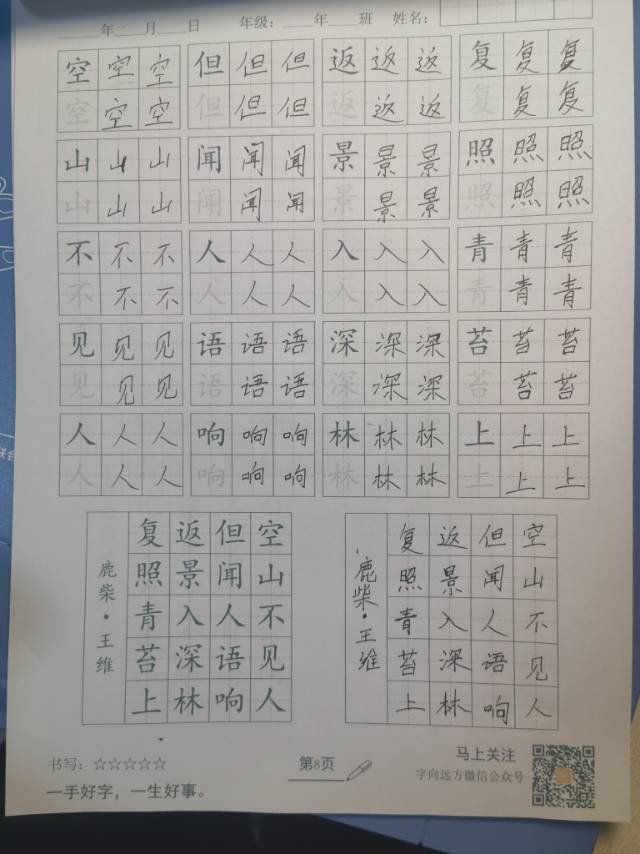 年 月 日 年级: 年 班 姓名:
空 空 空 但 但 但 返 返 返 复 复 复
空 空 空 但 但 但 返 返 返 复 复 复
山 山 山 闻 闻 闻 景 景 景 照 照 照
山 山 山 闻 闻 闻 景 景 景 照 照 照
不 不 不 人 人 人 入 入 入 青 青 青
不 不 不 人 人 人 入 入 入 青 青 青
见 见 见 语 语 语 深 深 深 苔 苔 苔
见 见 见 语 语 语 深 深 深 苔 苔 苔
人 人 人 响 响 响 林 林 林 上 上 上
人 人 人 响 响 响 林 林 林 上 上 上
鹿柴·王维
空山不见人
但闻人语响
返景入深林
复照青苔上
鹿柴·王维
空山不见人
但闻人语响
返景入深林
复照青苔上
书写:☆☆☆☆☆
一手好字,一生好事。
第8页
马上关注
字向远方微信公众号